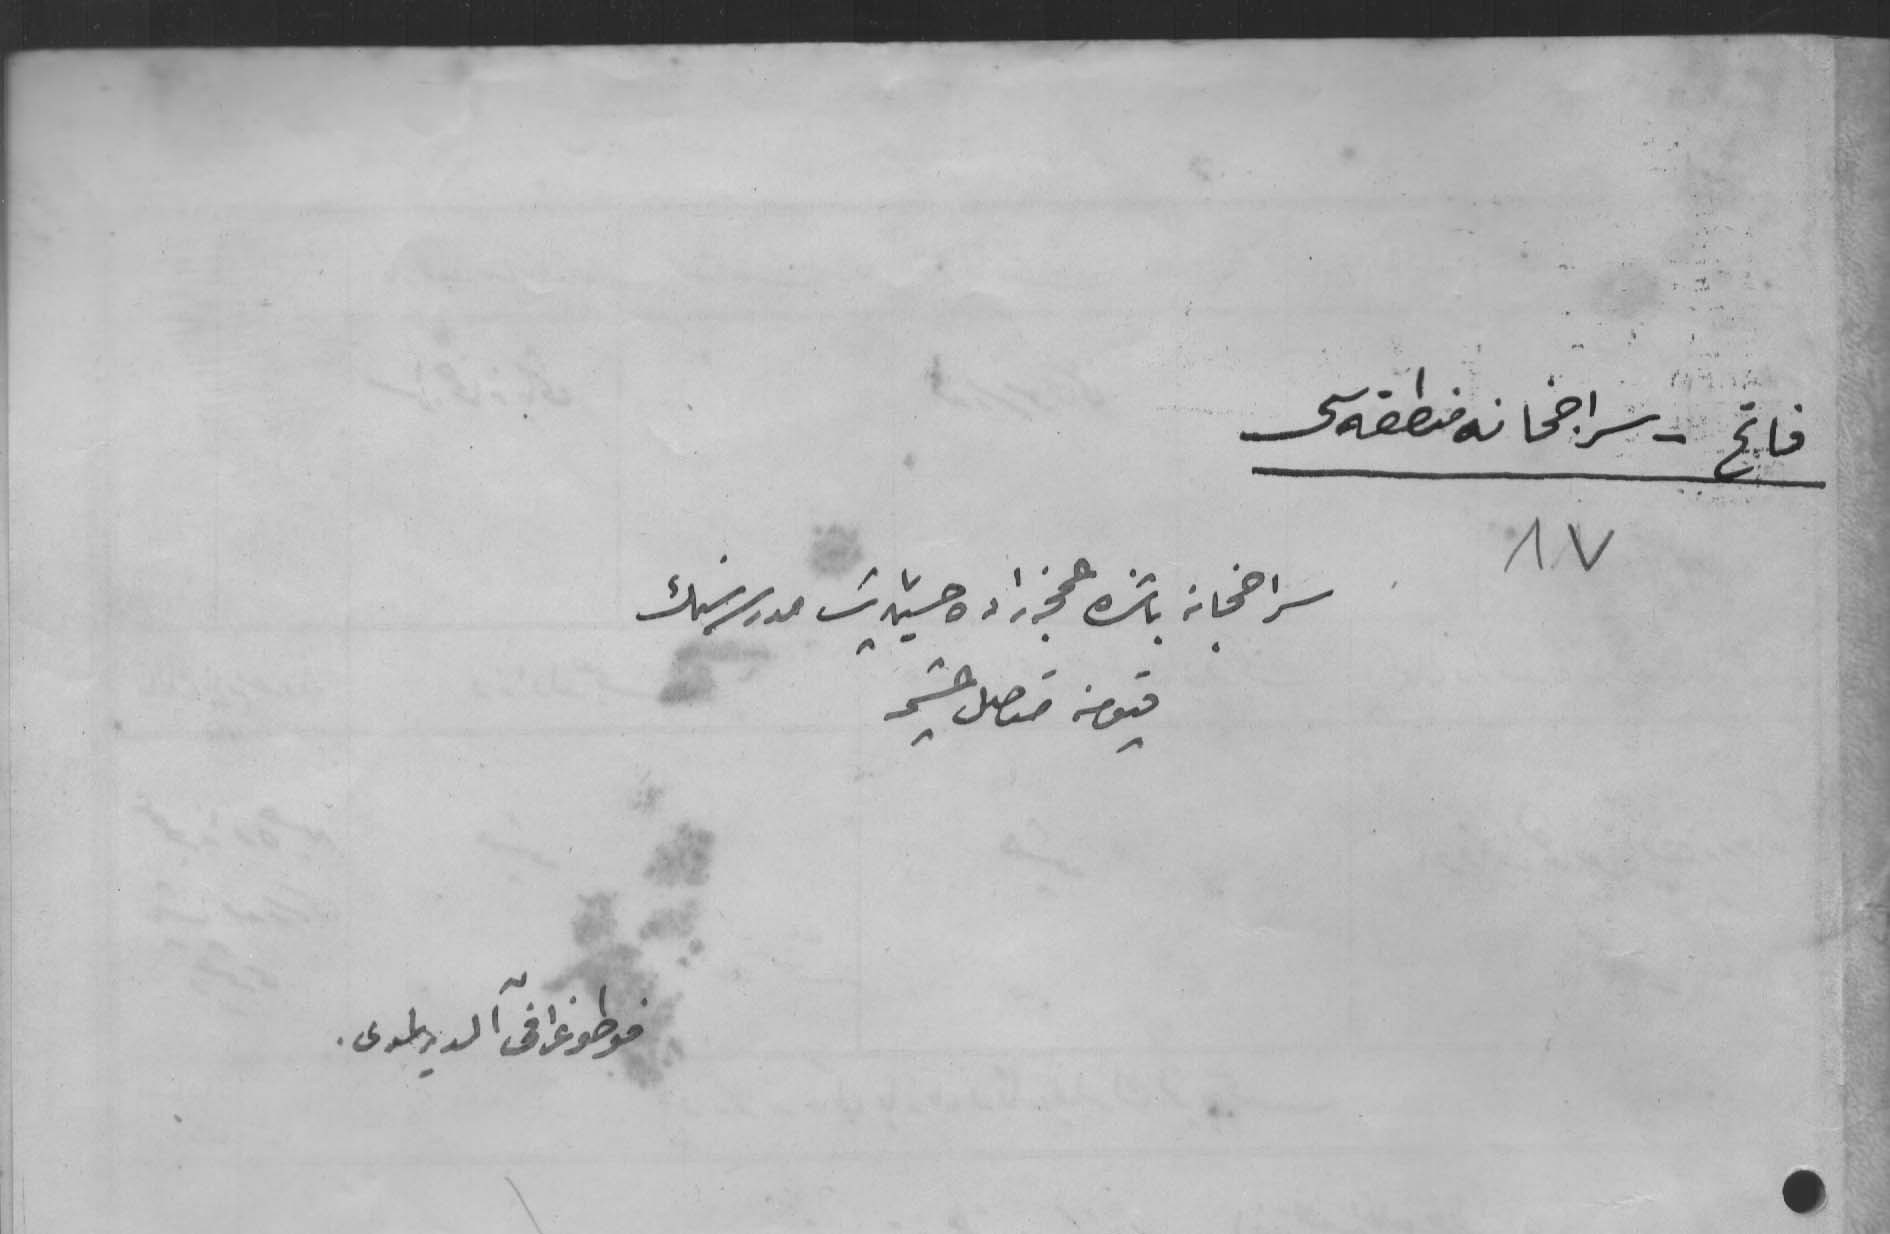 فاتح - سراجخانه منطقه‌سی
٨٧
سراجخانه باشنده عمجه زاده حسین پاشا مدرسه‌سنك
قپوسنه متصل چشمه
فوطوغرافی آلدیریلدی.